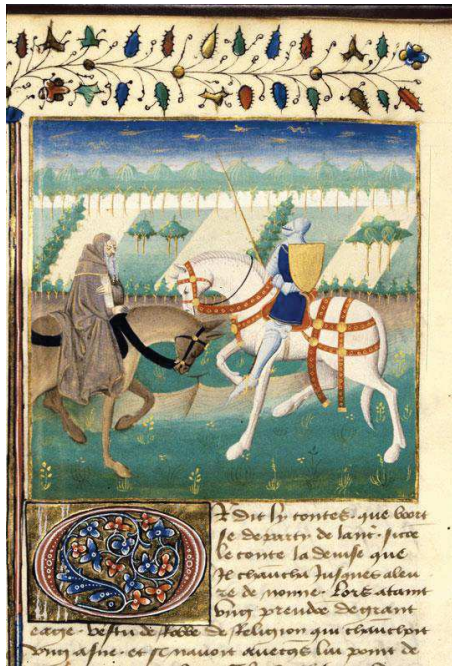 Or dit ly contes que boort
se departy de lanc. sicoe
le conte la deuise que
Il chaucha Jusques aleu
re de nonne. Lors ataint
vng preudoe de grant
eaige. vestu de Robbe de Religion qui chauchoit
vng asne. et se nauoit auecqs lui point de